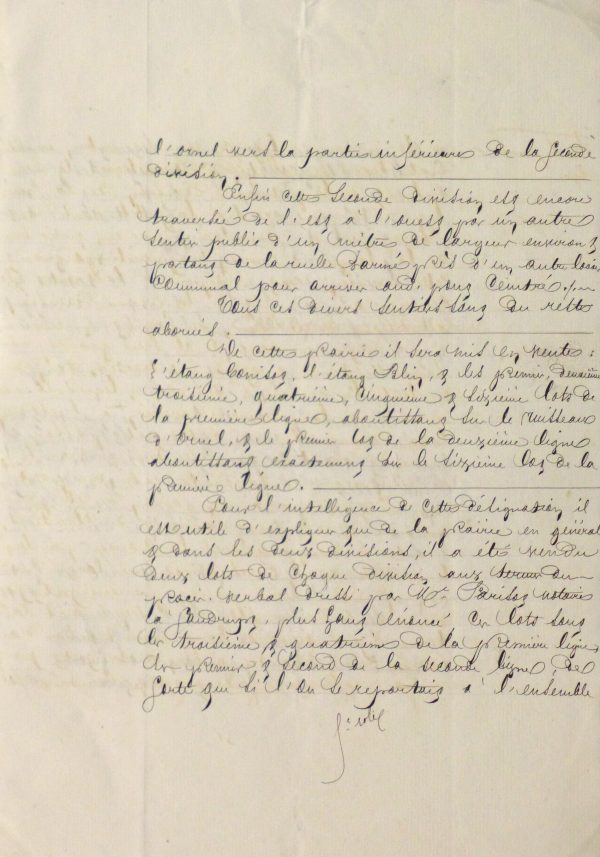 l'ornel vers la partie inférieure de la seconde
division.
Enfin cette seconde division est encore
traversée de l'est à l'ouest par un autre
sentier public d'un mètre de largeur environ &
partant de la ruelle Darmé près d'un autre
communal pour arriver au pont
Tous ces divers sentiers sont du reste
abornés.
De cette prairie il sera mis en vente :
L'étang l'étang Blin, & les premier, deuxième
troisième, quatrième, cinquième & sixième lots de
la première ligne, aboutissant sur le ruisseau
d'ornel, & le premier lot de la deuxième ligne
aboutissant exactement sur le sixième lot de la
première ligne.
Pour l'intelligence de cette désignation il
est utile d'expliquer que de la prairie en général
& dans les deux divisions, il a été vendu
deux lots de chaque division aux termes du
procès verbal dressé par Me Parisot notaire
à plus haut énoncé ces lots sont
les troisième & quatrième de la première ligne
les premier & second de la seconde ligne, de
sorte que si l'on se reportait à l'ensemble